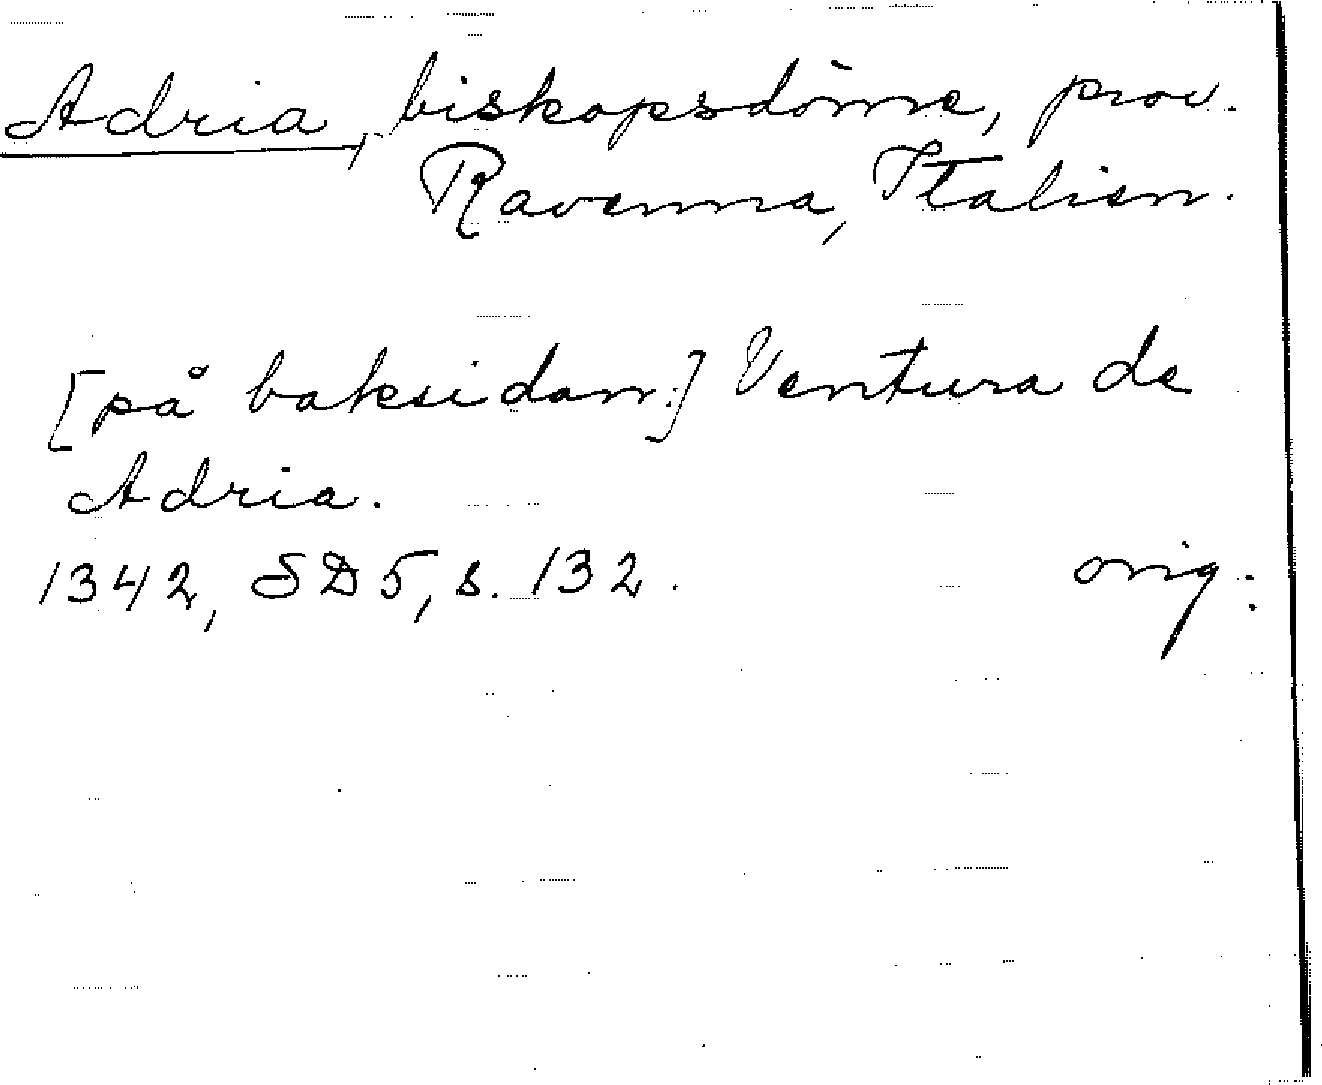 Adria, biskopsdöme, prov.
Ravenna, Italien.
[på baksidan:] Ventura de
Adria.
1342, SD5, s. 132. orig: